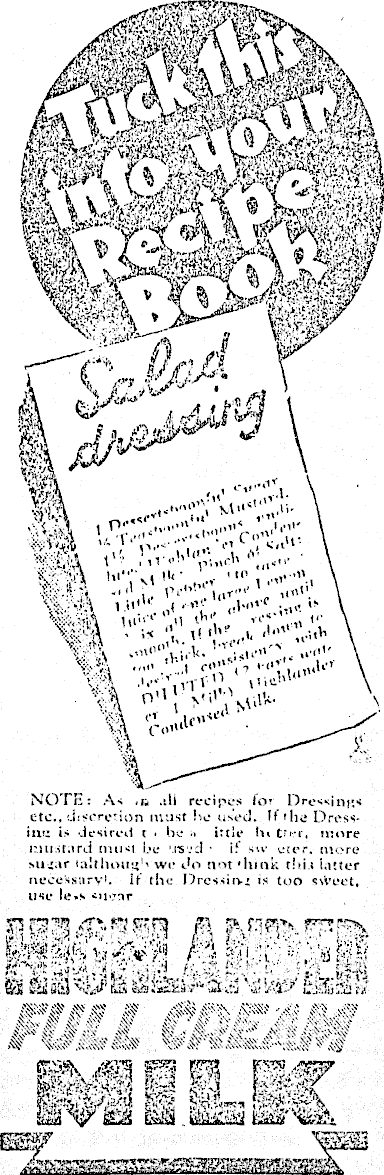 Tuck this
into your
Recipe
Book
Salad
dressing
1 Dessertspoonful Sugar
Teaspoonful Mustard.
1½ Dessertspoons undi-
luted Highlander Conden-
sed Milk. Pinch of Salt:
Little Pepper (to taste)
Juice of one large Lemon
Mix all the above until
smooth. If the Dressing is
too thick, break down to
desired consistency with
DILUTED (2 Parts wat-
er 1 Milk) Highlander
Condensed Milk.
NOTE: As in all recipes for Dressings
etc., discretion must be used. If the Dress-
ing is desired to be a little hotter, more
mustard must be used: if sweeter, more
sugar (although we do not think this latter
necessary). If the Dressing is too sweet,
use less sugar
HIGHLANDER
FULL CREAM
MILK